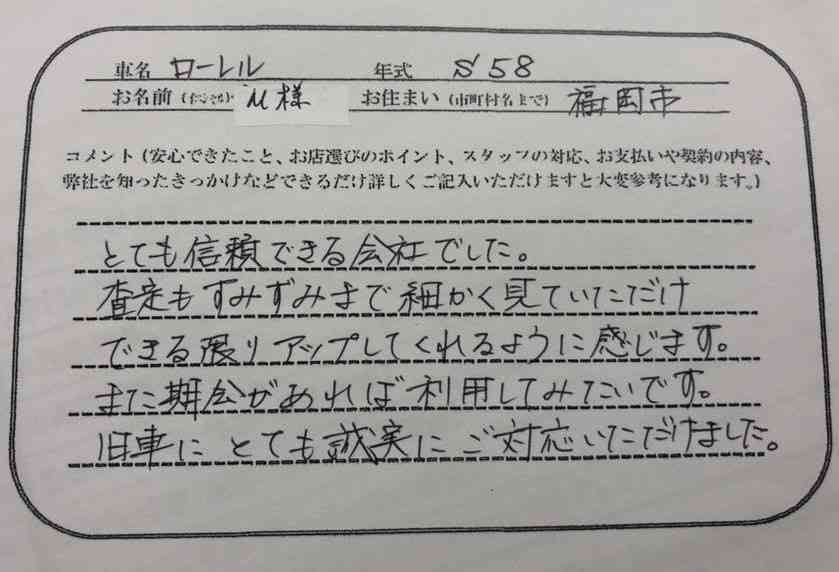 車名 ローレル 年式 S58
お名前(イニシャル) M様 お住まい(市町村名まで) 福岡市
コメント(安心できたこと、お店選びのポイント、スタッフの対応、お支払いや契約の内容、
弊社を知ったきっかけなどできるだけ詳しくご記入いただけますと大変参考になります。)
とても信頼できる会社でした。
査定もすみずみまで細かく見ていただけ
できる限りアップしてくれるように感じます。
また期会があれば利用してみたいです。
旧車にとても誠実にご対応いただけました。